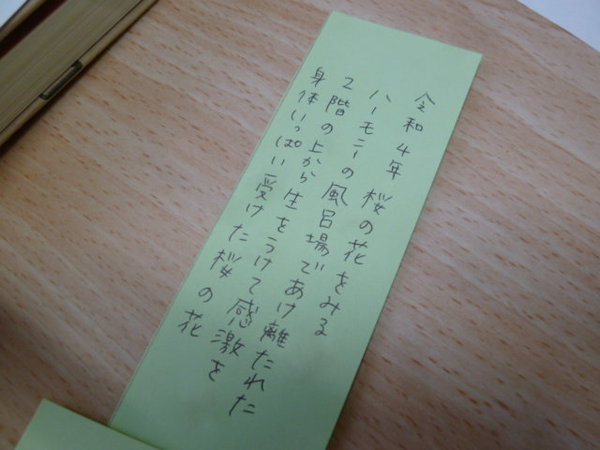 令和4年 桜の花をみる
ハーモニーの風呂場であけ離たれた
2階の上から生をうけて感激を
身体いっぱい受けた桜の花